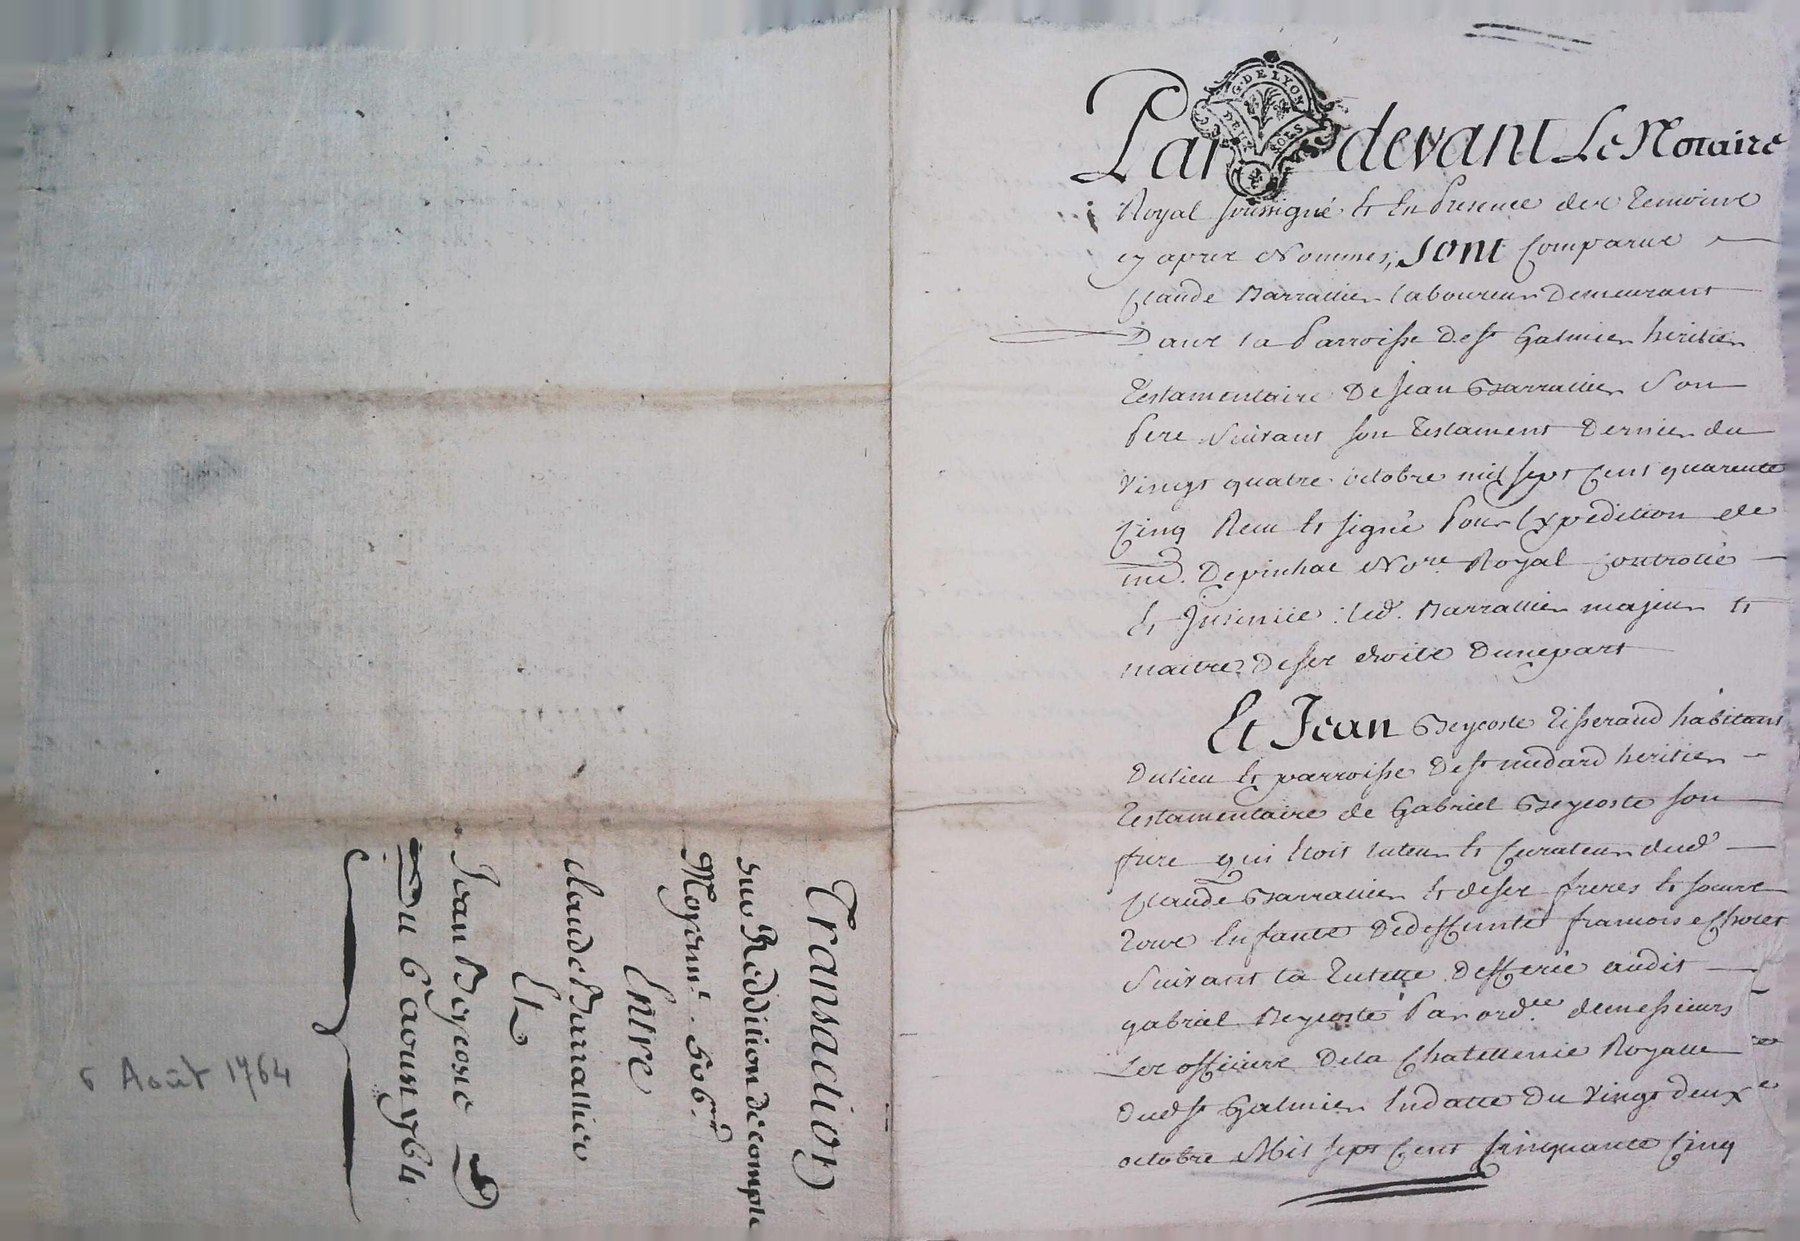 Transaction
sur Reddition de compte
Moyenn.t 506.
Entre
claude Barrallier
Et
Jean Beycoste
Du 6 aoust 1764.
6 Août 1764
G. DE LYON
DEUX SOLS
Par devant Le Notaire
Royal soussigné et En Presence des Temoins
cy apres Nommés, sont comparus
Claude Barrallier laboureur Demeurant
Dans la Parroisse De St Galmier heritier
Testamentaire De Jean Barrallier Son
Pere Suivant son Testament Dernier du
vingt quatre octobre mil sept Cent quarente
Cinq Reçu et signé Pour Expedition de
me. Depinhac Nore. Royal Controllé
et Insinué: led. Barrallier majeur et
maitre De ses droits D'une part
Et Jean Beycoste Tisserand habitant
Du lieu et parroisse De St medard heritier
Testamentaire de Gabriel Beycoste son
frere qui Etoit tuteur et Curateur dud.
Claude Barrallier et de ses freres et soeurs
tous Enfants De deffunte francoise
Suivant la Tutelle Defferée audit
gabriel Beycoste Par ord.ce de messieurs
Les officiers De la Chatellenie Royalle
Dud St Galmier En datte Du vingt deuxe
octobre Mil sept Cent Cinquante Cinq